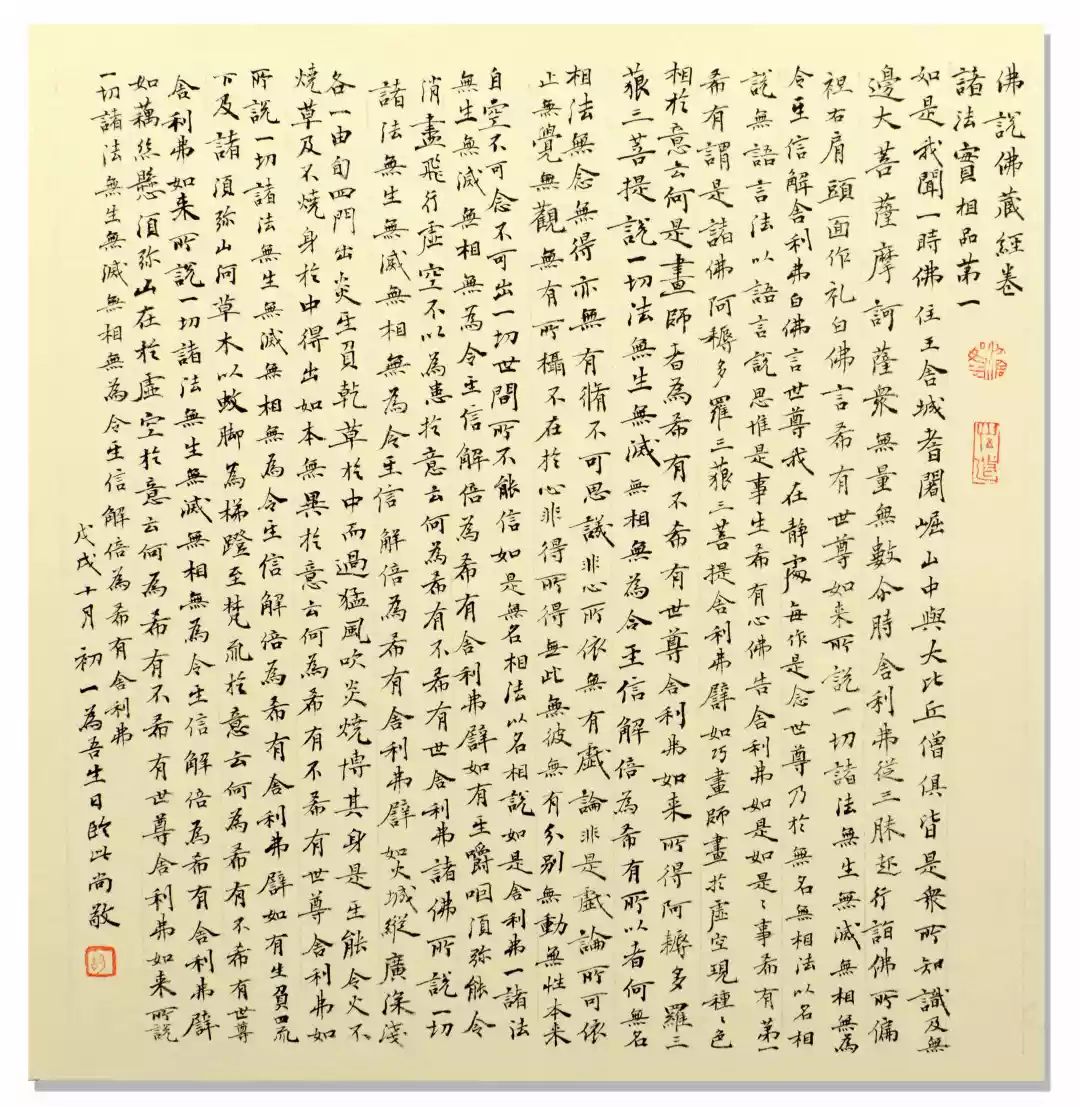 佛說佛藏經卷
諸法實相品第一
如是我聞一時佛住王舍城耆闍崛山中與大比丘僧俱皆是衆所知識及無
邊大菩薩摩訶薩衆無量無數尒時舍利弗從三昧起行詣佛所偏
袒右肩頭面作礼白佛言希有世尊如来所說一切諸法無生無滅無相無為
令至信解舍利弗白佛言世尊我在静處每作是念世尊乃於無名無相法以名相
說無語言法以語言說思惟是事生希有心佛告舍利弗如是如是〻事希有第一
希有謂是諸佛阿耨多羅三藐三菩提舍利弗譬如巧畫師畫於虛空現種〻色
相於意云何是畫師者為希有不希有世尊舍利弗如来所得阿耨多羅三
藐三菩提說一切法無生無滅無相無為令至信解倍為希有所以者何無名
相法無念無得亦無有脩不可思議非心所依無有戲論非是戲論所可依
止無覺無觀無有所攝不在於心非得所得無此無彼無有分別無動無性本来
自空不可念不可出一切世間所不能信如是無名相法以名相說如是舍利弗一諸法
無生無滅無相無為令至信解倍為希有舍利弗譬如有生嚼咽須弥能令
消盡飛行虛空不以為患於意云何為希有不希有世舍利弗諸佛所說一切
諸法無生無滅無相無為令至信解倍為希有舍利弗譬如火城縱廣深淺
各一由旬四門出炎至負乾草於中而過猛風吹炎燒博其身是至能令火不
燒草及不燒身於中得出如本無異於意云何為希有不希有世尊舍利弗如
所說一切諸法無生無滅無相無為令至信解倍為希有舍利弗譬如有生負四㡿
下及諸須弥山河草木以蚊脚為梯蹬至梵㡿於意云何為希有不希有世尊
舍利弗如来所說一切諸法無生無滅無相無為令生信解倍為希有舍利弗譬
如藕絲懸須弥山在於虛空於意云何為希有不希有世尊舍利弗如来所說
一切諸法無生無滅無相無為令至信解倍為希有舍利弗
戊戌十月初一為吾生日臨此尚敬